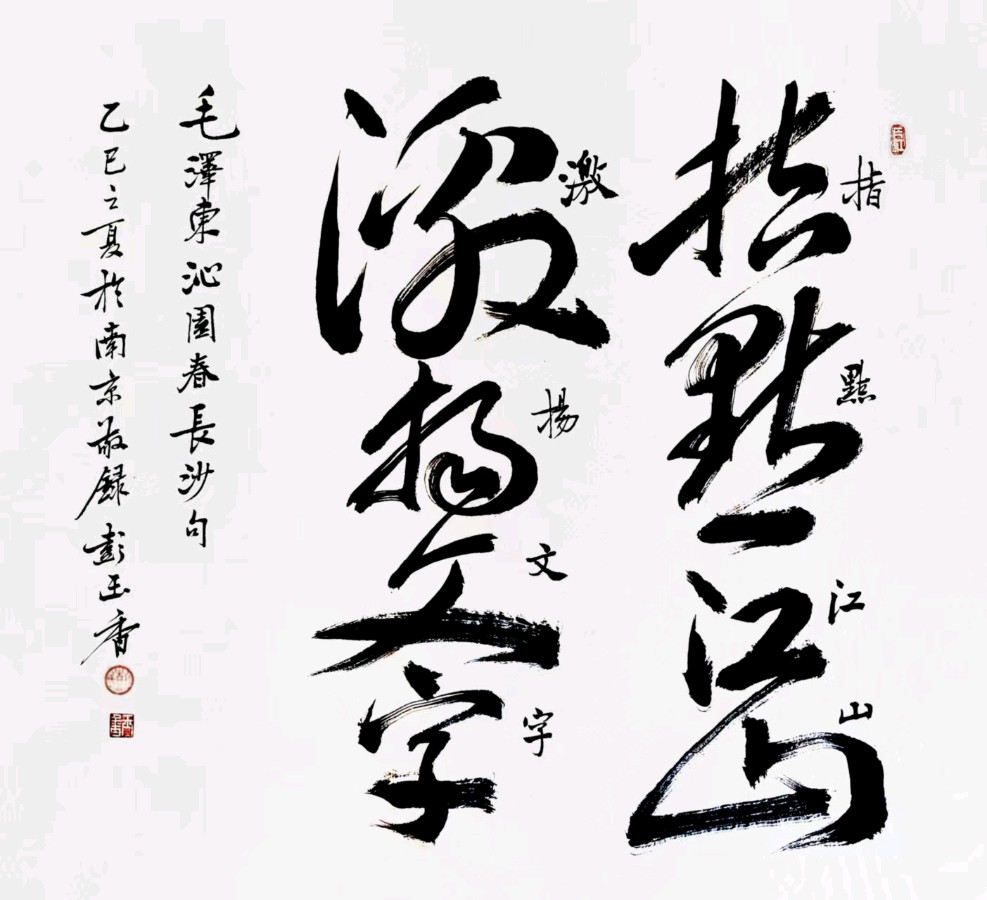 指點江山
指點江山
激揚文字
激揚文字
毛澤東沁園春長沙句
乙巳之夏於南京敬録彭玉香